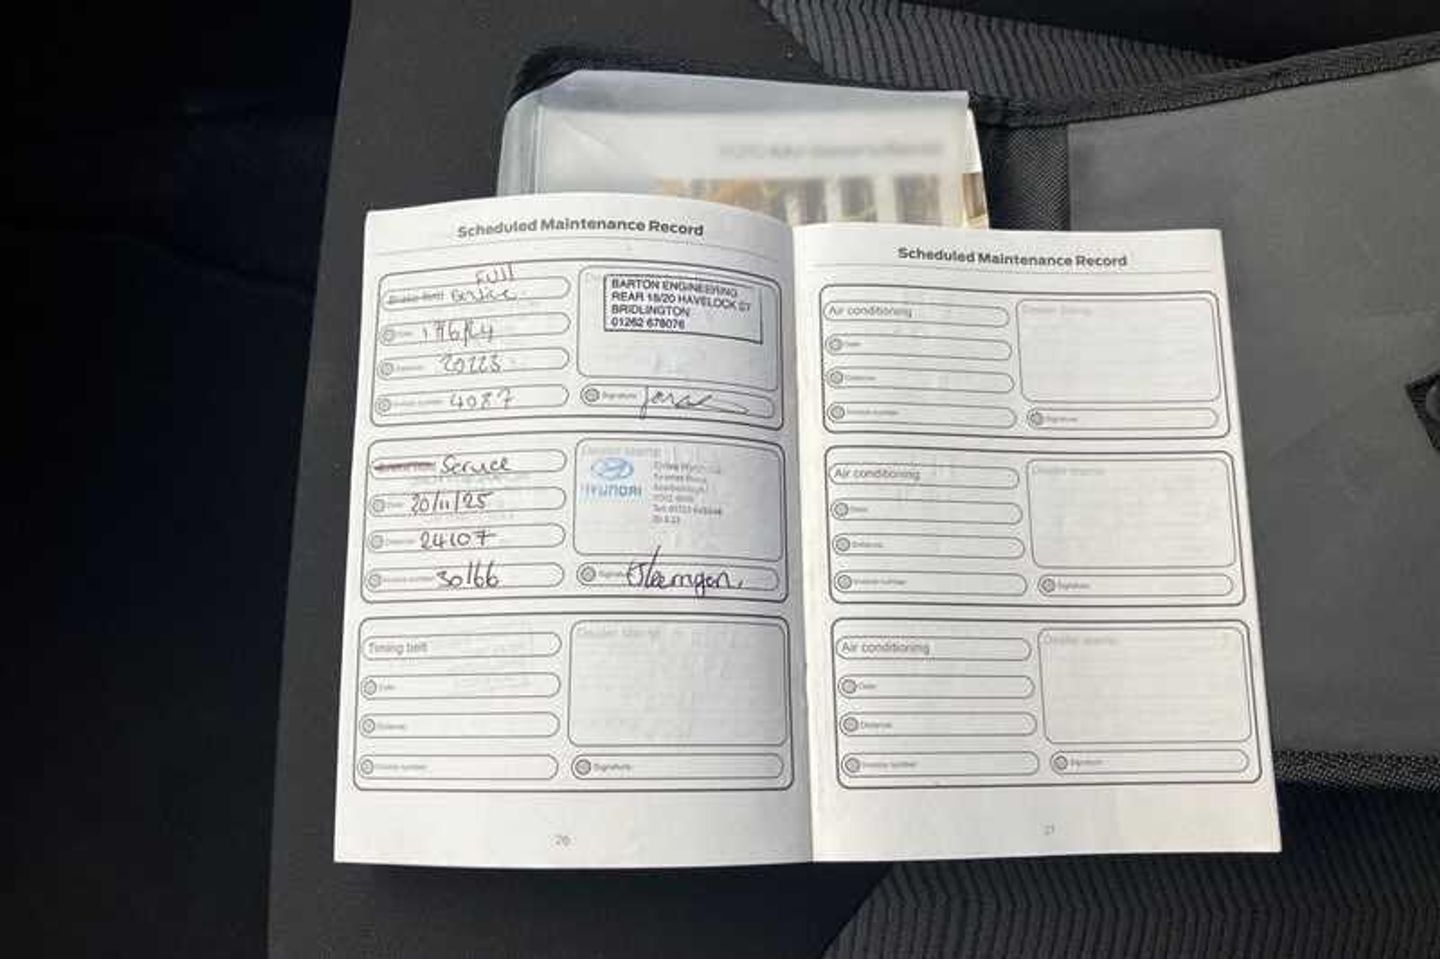 Scheduled Maintenance Record
Full
Brake fluid Service
Date 17/6/24
Distance 20223
Invoice number 4087
BARTON ENGINEERING
REAR 18/20 HAVELOCK ST
BRIDLINGTON
01262 678076
Signature
Service
Date 20/11/25
Distance 24107
Invoice number 30166
Dealer stamp
HYUNDAI
Signature
Timing belt
Date
Distance
Invoice number
Dealer stamp
Signature
26
Scheduled Maintenance Record
Air conditioning
Date
Distance
Invoice number
Dealer stamp
Signature
Air conditioning
Date
Distance
Invoice number
Dealer stamp
Signature
Air conditioning
Date
Distance
Invoice number
Dealer stamp
Signature
27